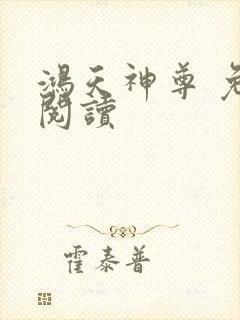 鴻天神尊 免
閱讀
霍泰普